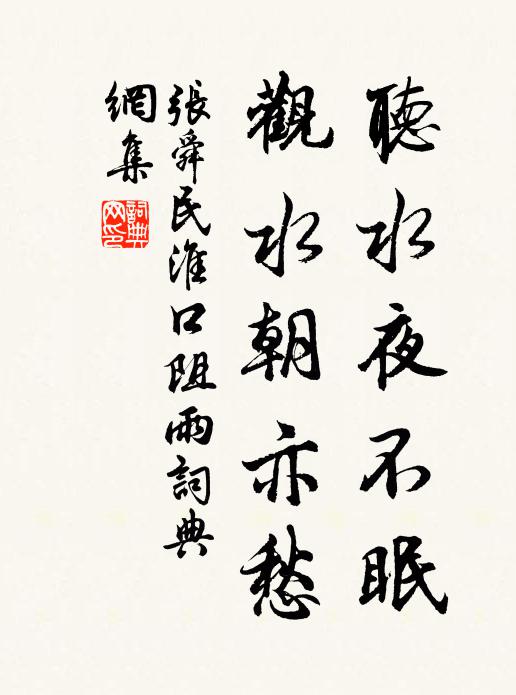 聽水夜不眠
觀水朝亦愁
張舜民淮口阻雨詞典
網集
詞典
网印